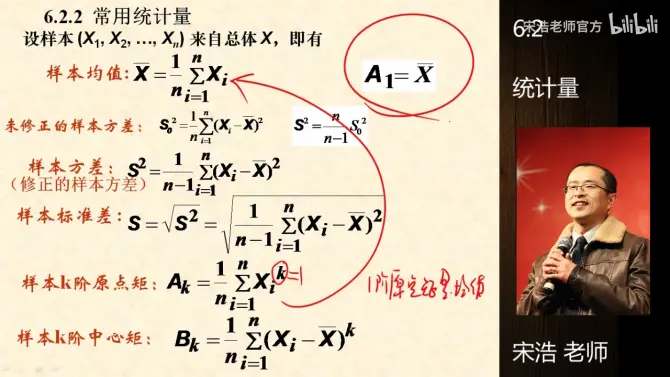 6.2.2 常用统计量
设样本 (X₁, X₂, …, Xₙ) 来自总体 X，即有
样本均值: X̄ = 1/n ∑ᵢ₌₁ⁿ Xᵢ
A₁ = X̄
未修正的样本方差: S₀² = 1/n ∑ᵢ₌₁ⁿ (Xᵢ − X̄)² S² = n/(n−1) S₀²
样本方差: S² = 1/(n−1) ∑ᵢ₌₁ⁿ (Xᵢ − X̄)²
（修正的样本方差）
样本标准差: S = √S² = √(1/(n−1) ∑ᵢ₌₁ⁿ (Xᵢ − X̄)²)
样本k阶原点矩: Aₖ = 1/n ∑ᵢ₌₁ⁿ Xᵢᵏ =1
1阶原点矩是均值
样本k阶中心矩: Bₖ = 1/n ∑ᵢ₌₁ⁿ (Xᵢ − X̄)ᵏ
6.2
宋浩老师官方 bilibili
统计量
宋浩 老师